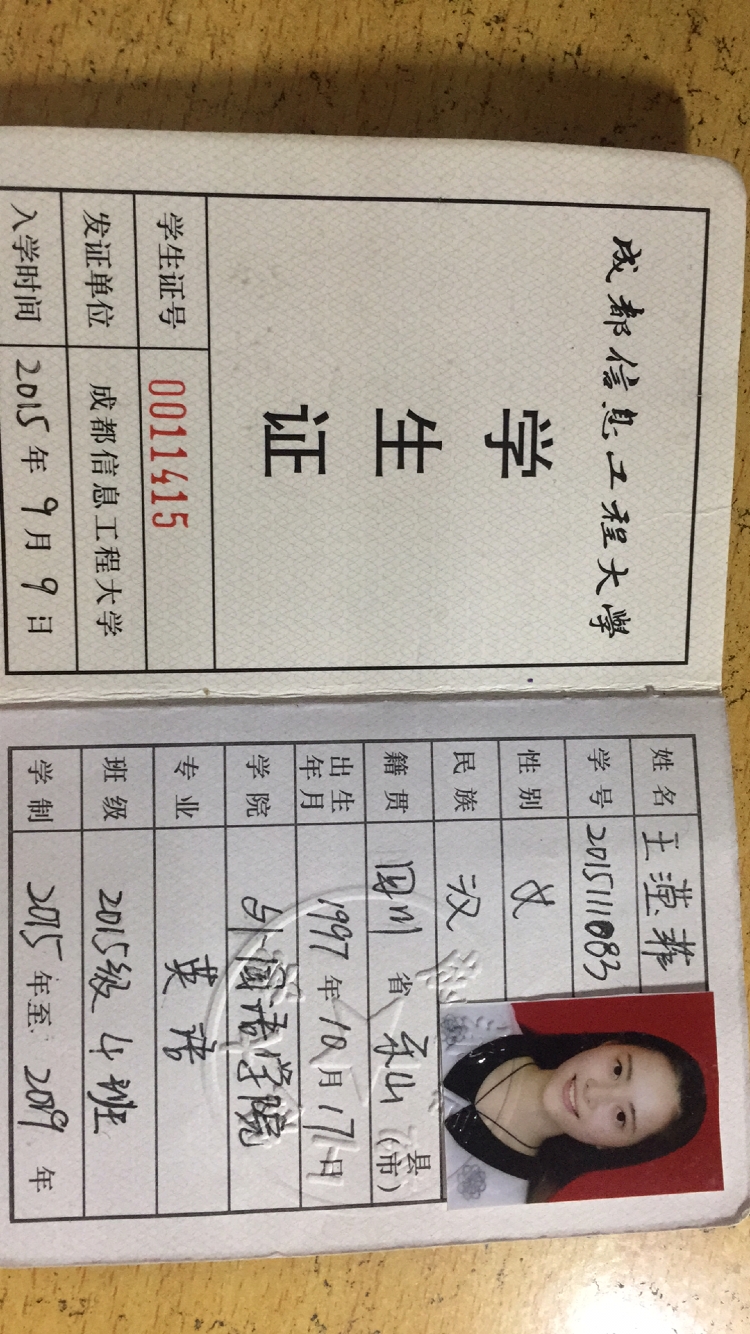 成都信息工程大学
学生证
学生证号 0011415
发证单位 成都信息工程大学
入学时间 2015年9月9日
姓名 王滢
学号 2015111083
性别 女
民族 汉
籍贯 四川 省 乐山 县(市)
出生年月 1997年10月17日
学院 外国语学院
专业 英语
班级 2015级4班
学制 2015年至2019年